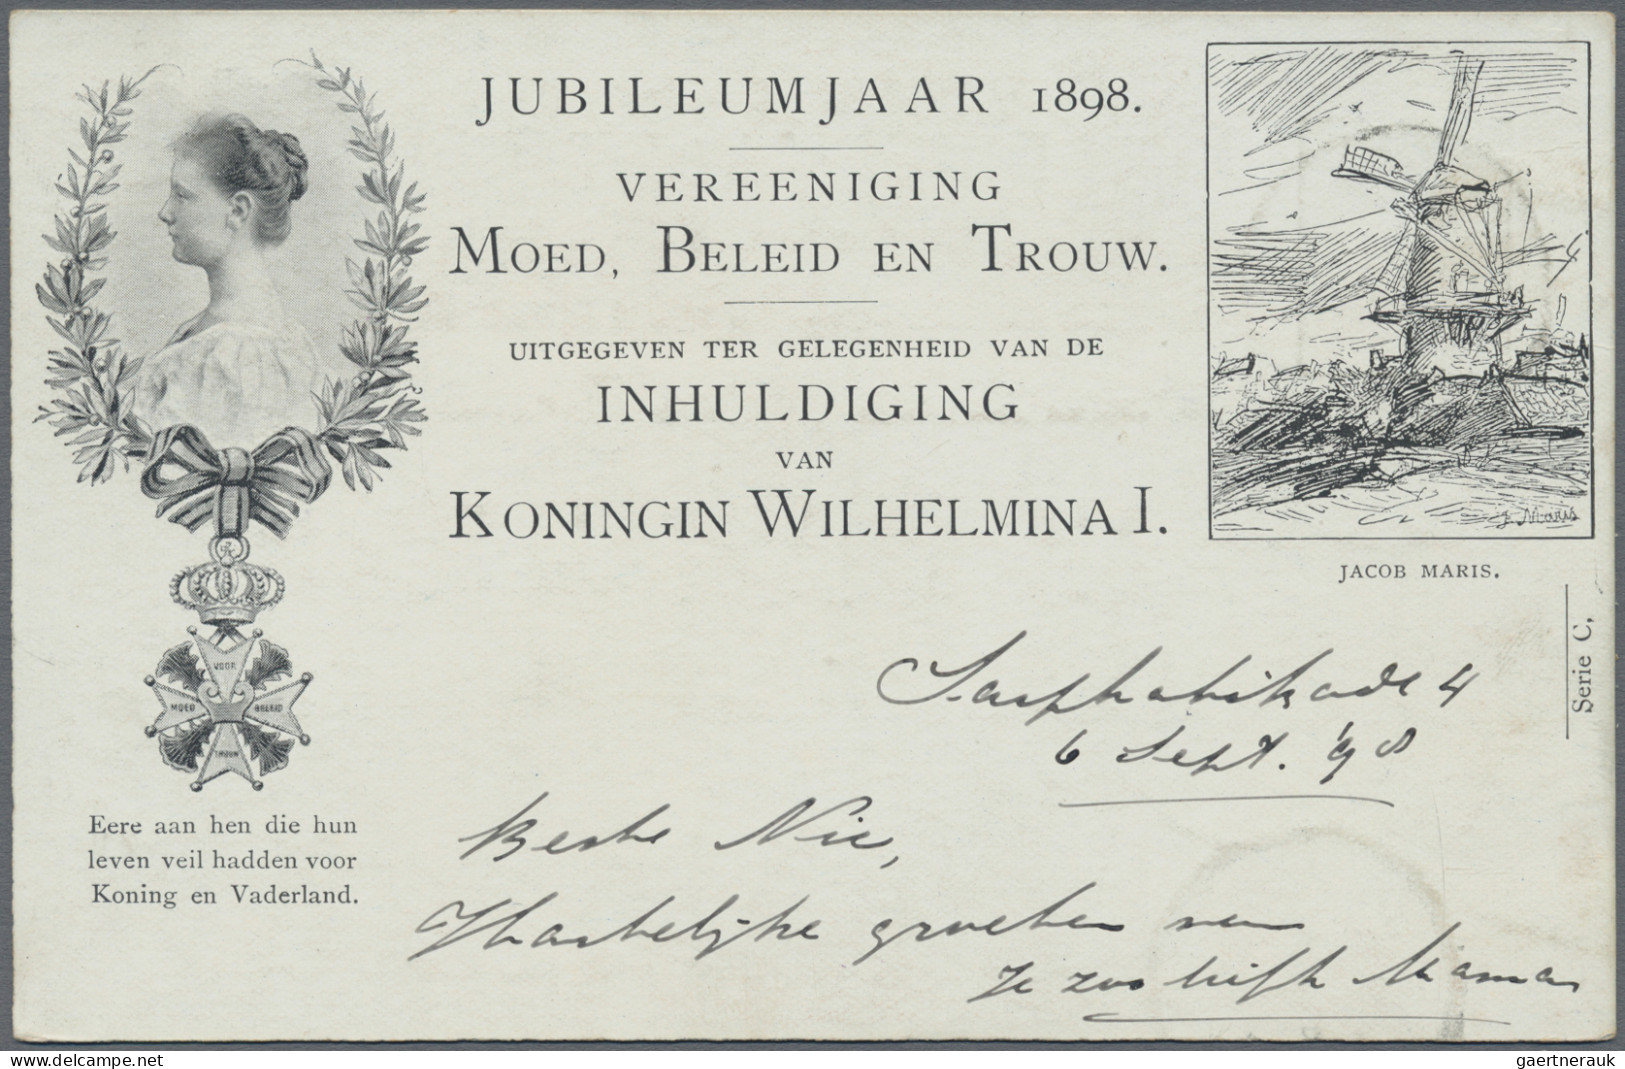 JUBILEUMJAAR 1898.
VEREENIGING
MOED, BELEID EN TROUW.
UITGEGEVEN TER GELEGENHEID VAN DE
INHULDIGING
VAN
KONINGIN WILHELMINA I.
J. Maris
JACOB MARIS.
Serie C,
VOOR
MOED
BELEID
TROUW
Eere aan hen die hun
leven veil hadden voor
Koning en Vaderland.
Sarphatikade 4
6 Sept. '98
Beste Nic,
Hartelijke groeten van
Je zoo liefh Mama
delcampe.net
gaertnerauk